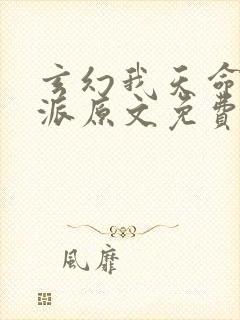 玄幻我天命
派原文免費
風靡